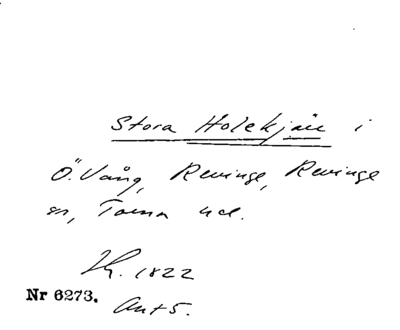 Stora Holekjär i
Ö. Vång, Revinge, Revinge
sn, Torna hd.
1822
Nr 6273. Ant 5.